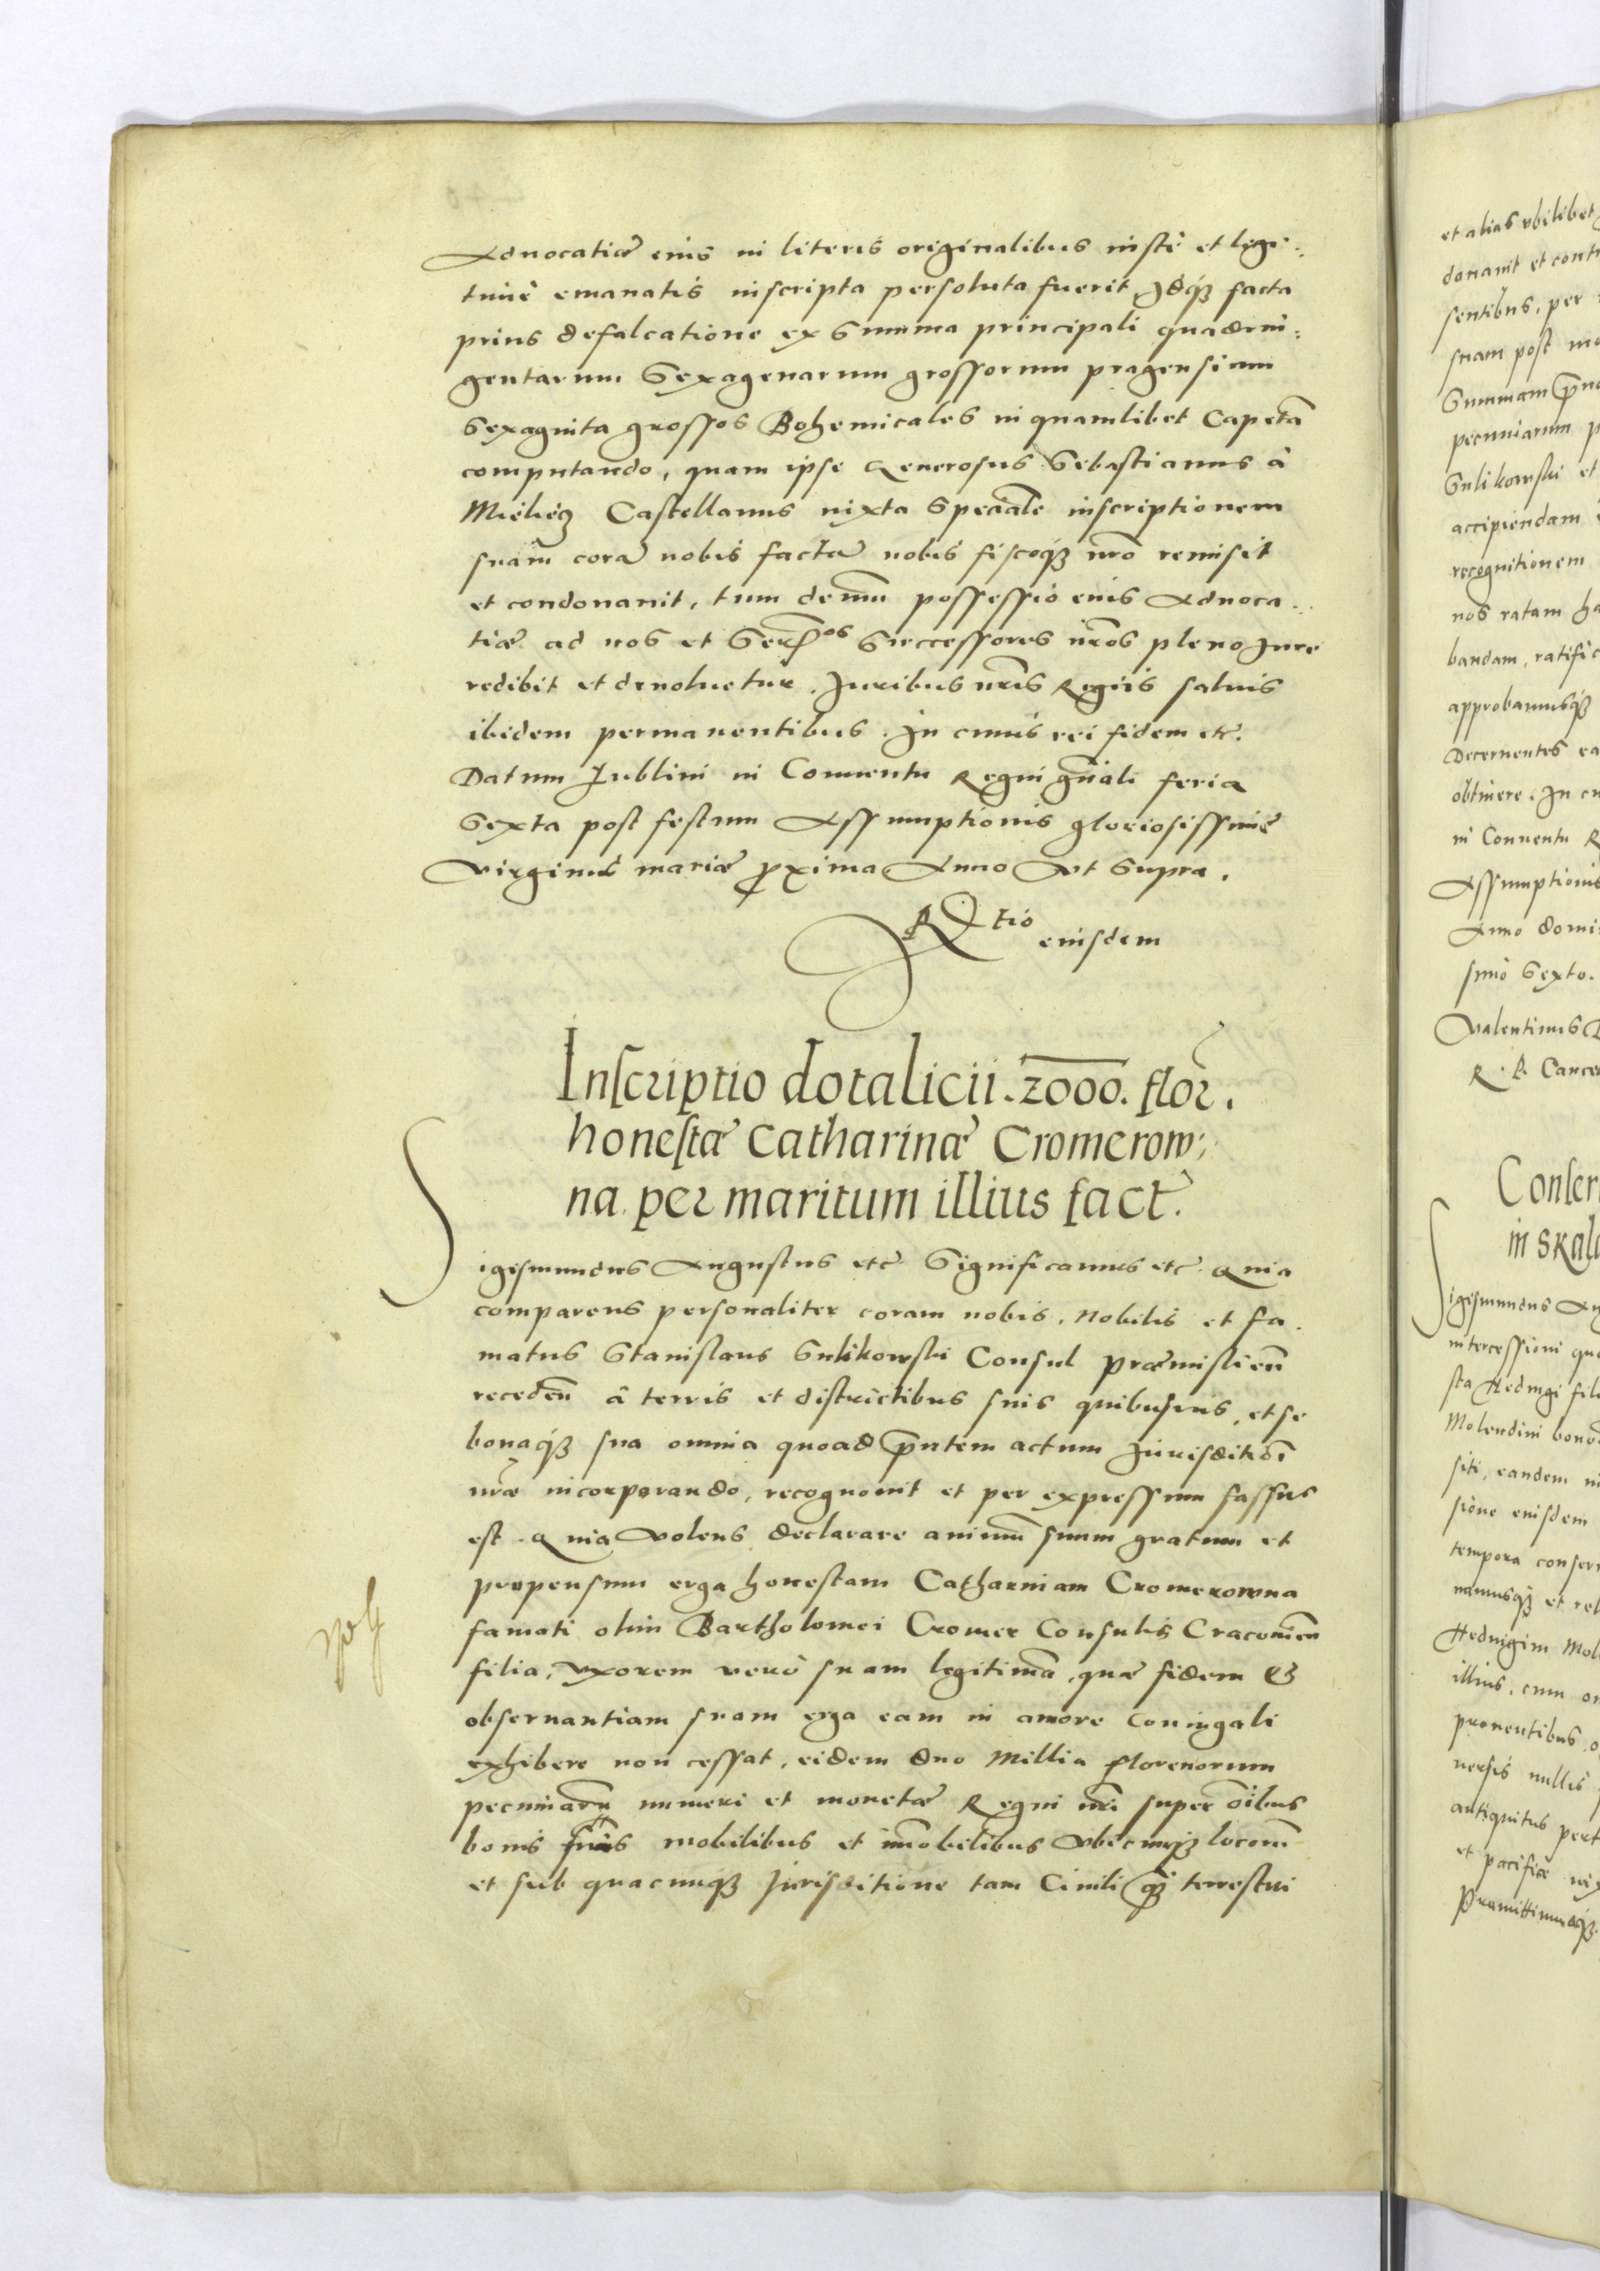 Aduocatiæ eius in literis originalibus iuste et legi:
timè emanatis inscripta persoluta fuerit, Idq́ꝫ facta
prius defalcatione ex Summa principali quadrin:
gentarum Sexagenarum grossorum pragensium
Sexaginta grossos Bohemicales in quamlibet Capetã
computando, quam ipse Generosus Sebastianus à
Mieliecz Castellanus iuxta Specialẽ inscriptionem
suam corã nobis factã nobis fiscoq́ꝫ nr̃o remisit
et condonauit, tum demũ possessio eius Aduoca:
tiæ ad nos et Ser.mos Successores nr̃os pleno Iure
redibit et deuoluetur, Iuribus nr̃is Regiis saluis
ibidem permanentibus. In cuius rei fidem etc̃.
Datum Lublini in Conuentu Regni gñali feria
Sexta post festum Assumptionis gloriosissimæ
Virginis mariæ proxima Anno Vt Supra.
Rtio
eiusdem
Inscriptio dotalicii. 2000. flor̃.
honestæ Catharinæ Cromerow:
na per maritum illius fact̃.
Sigismundus Augustus etc̃ Significamus etc̃ Quia
comparens personaliter coram nobis, Nobilis et fa:
matus Stanislaus Sulikowski Consul Præmislieñ
recedeñ à terris et districtibus suis quibusuis, et se
bonaq́ꝫ sua omnia quoad p̃ntem actum Iurisditiõi
nr̃æ incorporando, recognouit et per expressum fassus
est. Quia Volens declarare animũ suum gratum et
propensum erga honestam Catharinam Cromerowna
famati olim Bartholomei Cromer Consulis Cracouieñ
filiã, Vxorem verò suam legitimã, quæ fidem &
obseruantiam suam erga eam in amore Coniugali
exhibere non cessat, eidem duo Millia florenorum
pecuniarũ numeri et monetæ Regni nr̃i super oĩbus
bonis suis mobilibus et ĩmobilibus Vbicunq́ꝫ locorũ
et sub quacunq́ꝫ Iurisditione tam Ciuili q̃ꝫ terrestri
et alias vbilibet
donauit et
sentibus, per
suam post
Summam
pecuniarum
Sulikowski et
accipiendam
recognitionem
nos ratam
bandam,
approbamusq́ꝫ
Decernentes
obtinere. In
in Conuentu
Assumptionis
Anno
simo Sexto.
Valentinus
R. P.
in
Sigismundus
intercessioni
Molendini
siti, eandem
sione eiusdem
tempora
et
illius, cum
uersis nullis
antiquitus
et pacificæ